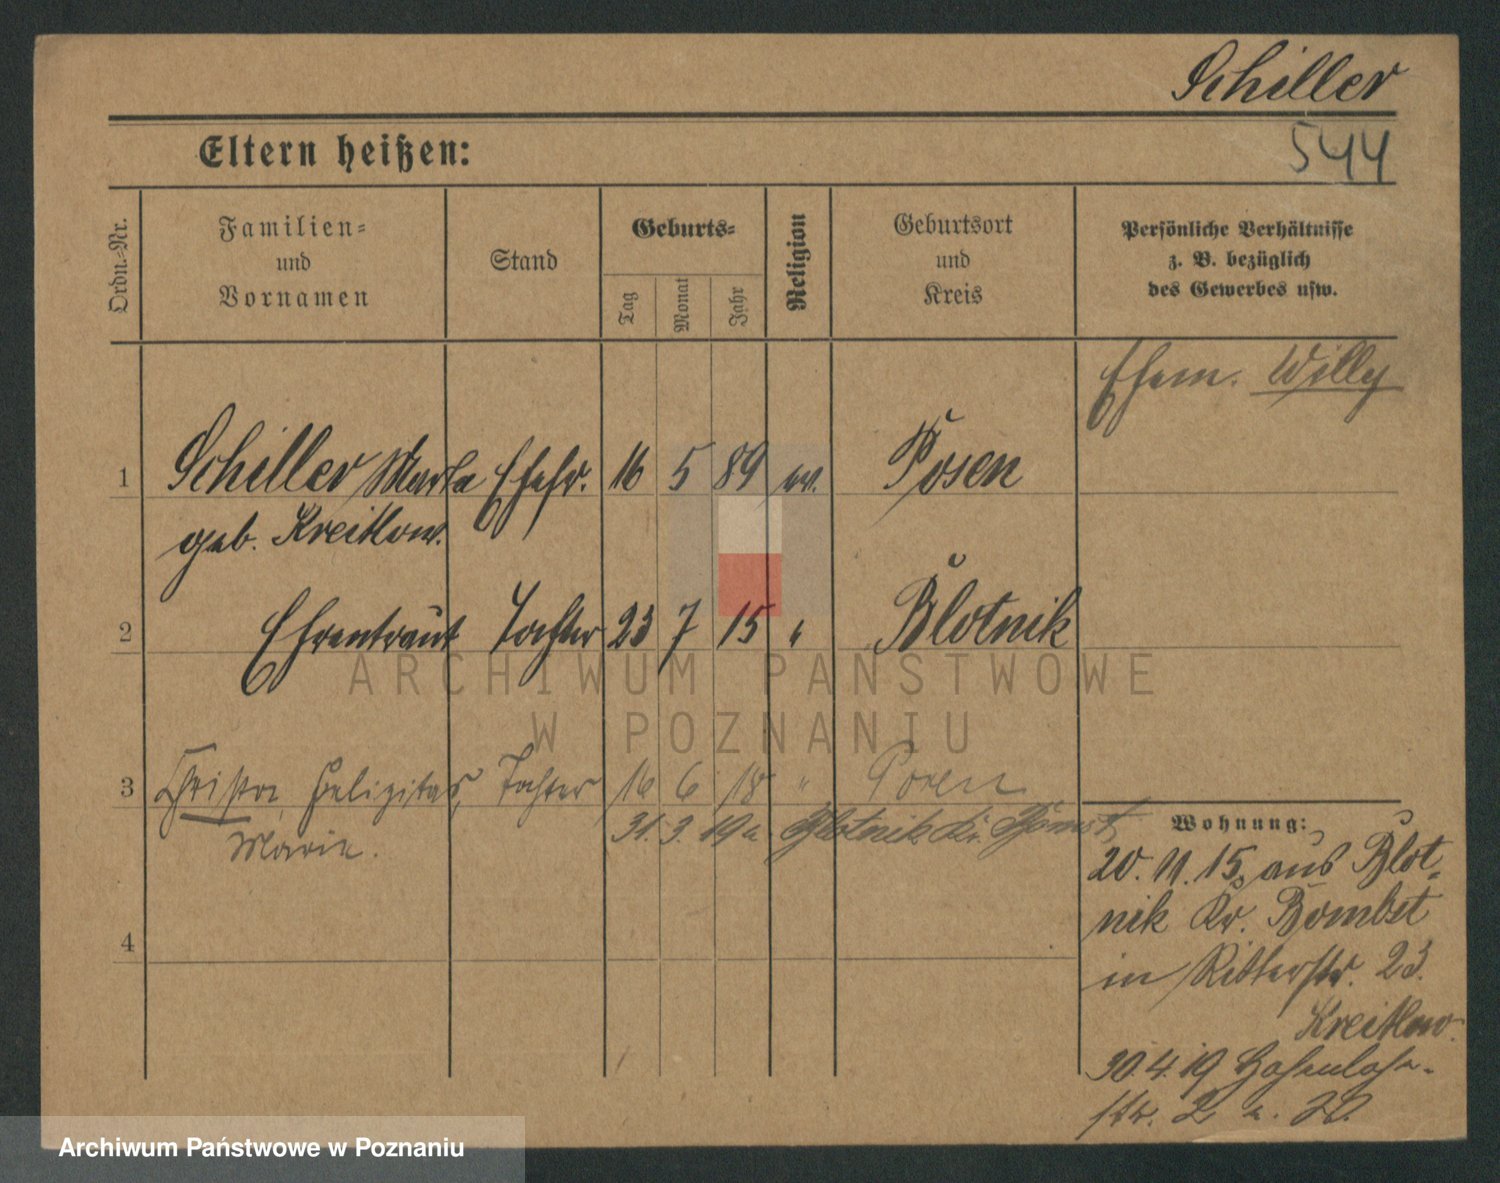 Schiller
544
Eltern heißen:
Ordn.-Nr.
Familien-
und
Vornamen
Stand
Geburts-
Tag
Monat
Jahr
Religion
Geburtsort
und
Kreis
Persönliche Verhältnisse
z. B. bezüglich
des Gewerbes usw.
Ehem. Willy
1 Schiller Marta Ehefr. 16 5 89 ev. Posen
geb. Kreitlow.
2 Ehrentraut Tochter 23 7 15 " Blotnik
3 Christa, Felizitas, Tochter 16 6 18 " Posen
Marie.
31. 3. 19 a. Blotnik Kr. Bomst
4
Wohnung:
20. 11. 15. aus Blot-
nik Kr. Bombst
in Ritterstr. 23.
Kreitlow.
30.4.19 Hohenlohe-
str. 2
ARCHIWUM PAŃSTWOWE
W POZNANIU
Archiwum Państwowe w Poznaniu